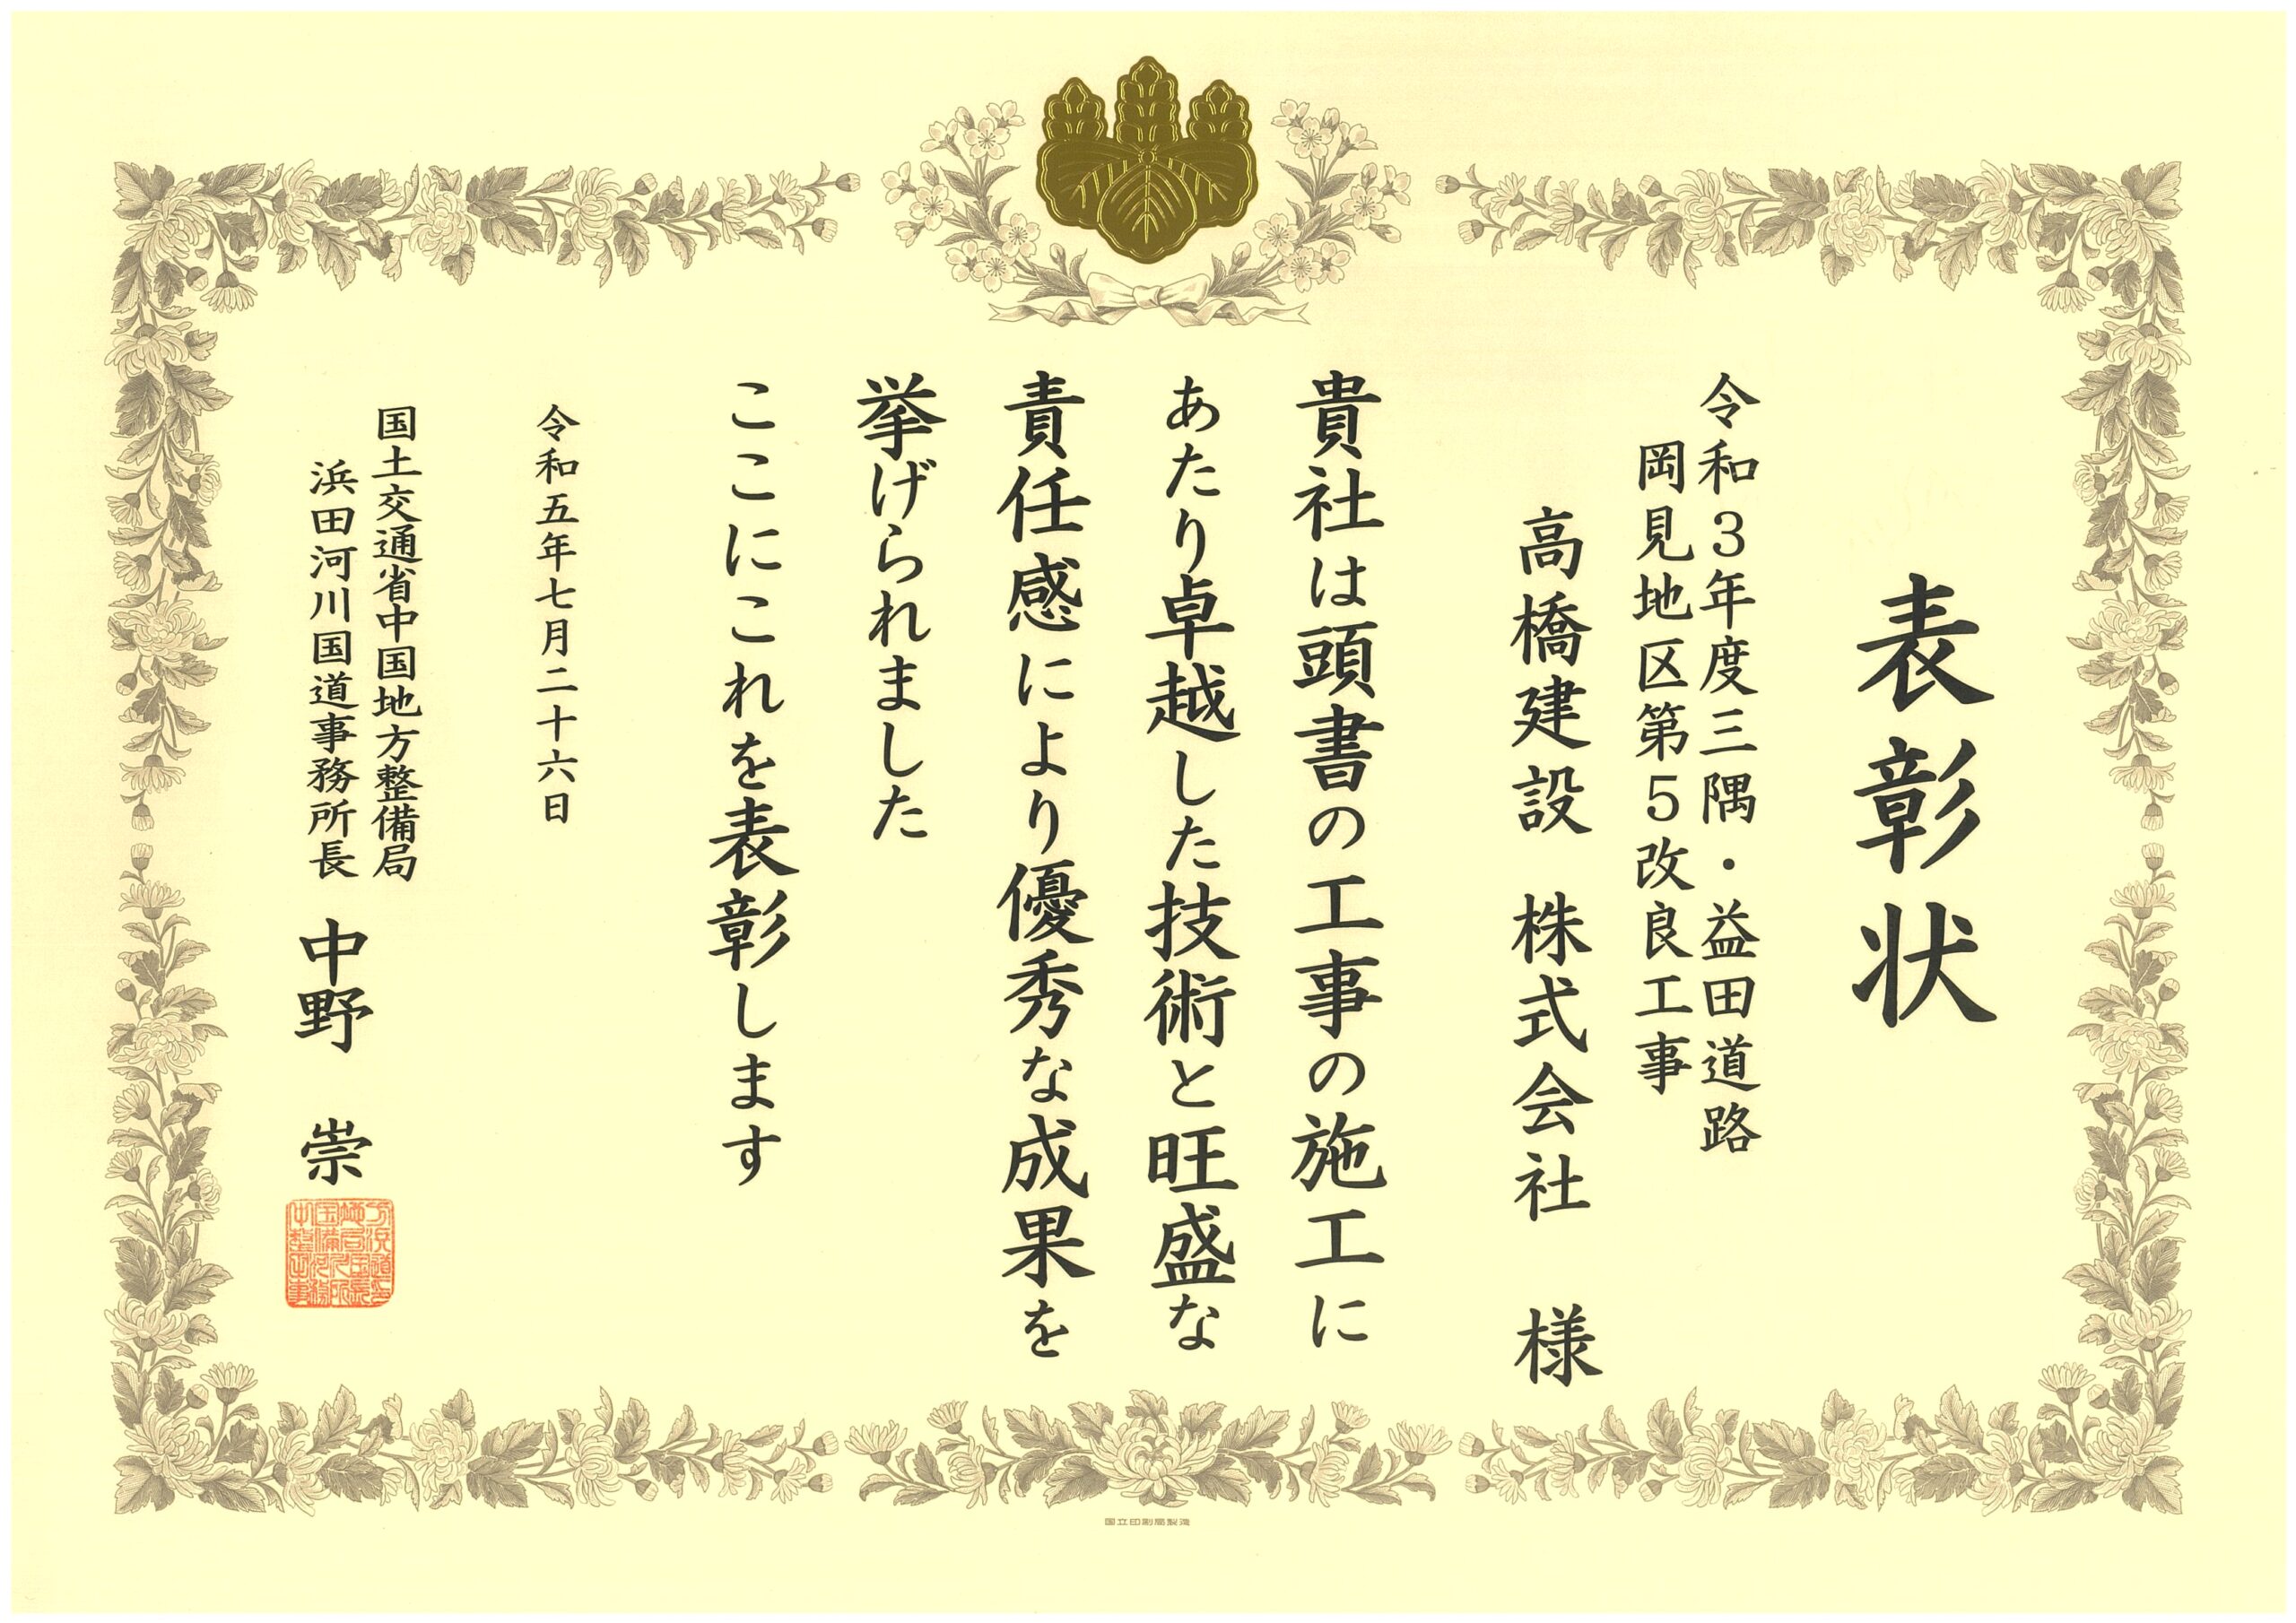 表彰状
令和３年度三隅・益田道路
岡見地区第５改良工事
高橋建設　株式会社　様
貴社は頭書の工事の施工に
あたり卓越した技術と旺盛な
責任感により優秀な成果を
挙げられました
ここにこれを表彰します
令和五年七月二十六日
国土交通省中国地方整備局
浜田河川国道事務所長　中野　崇
国立印刷局製造